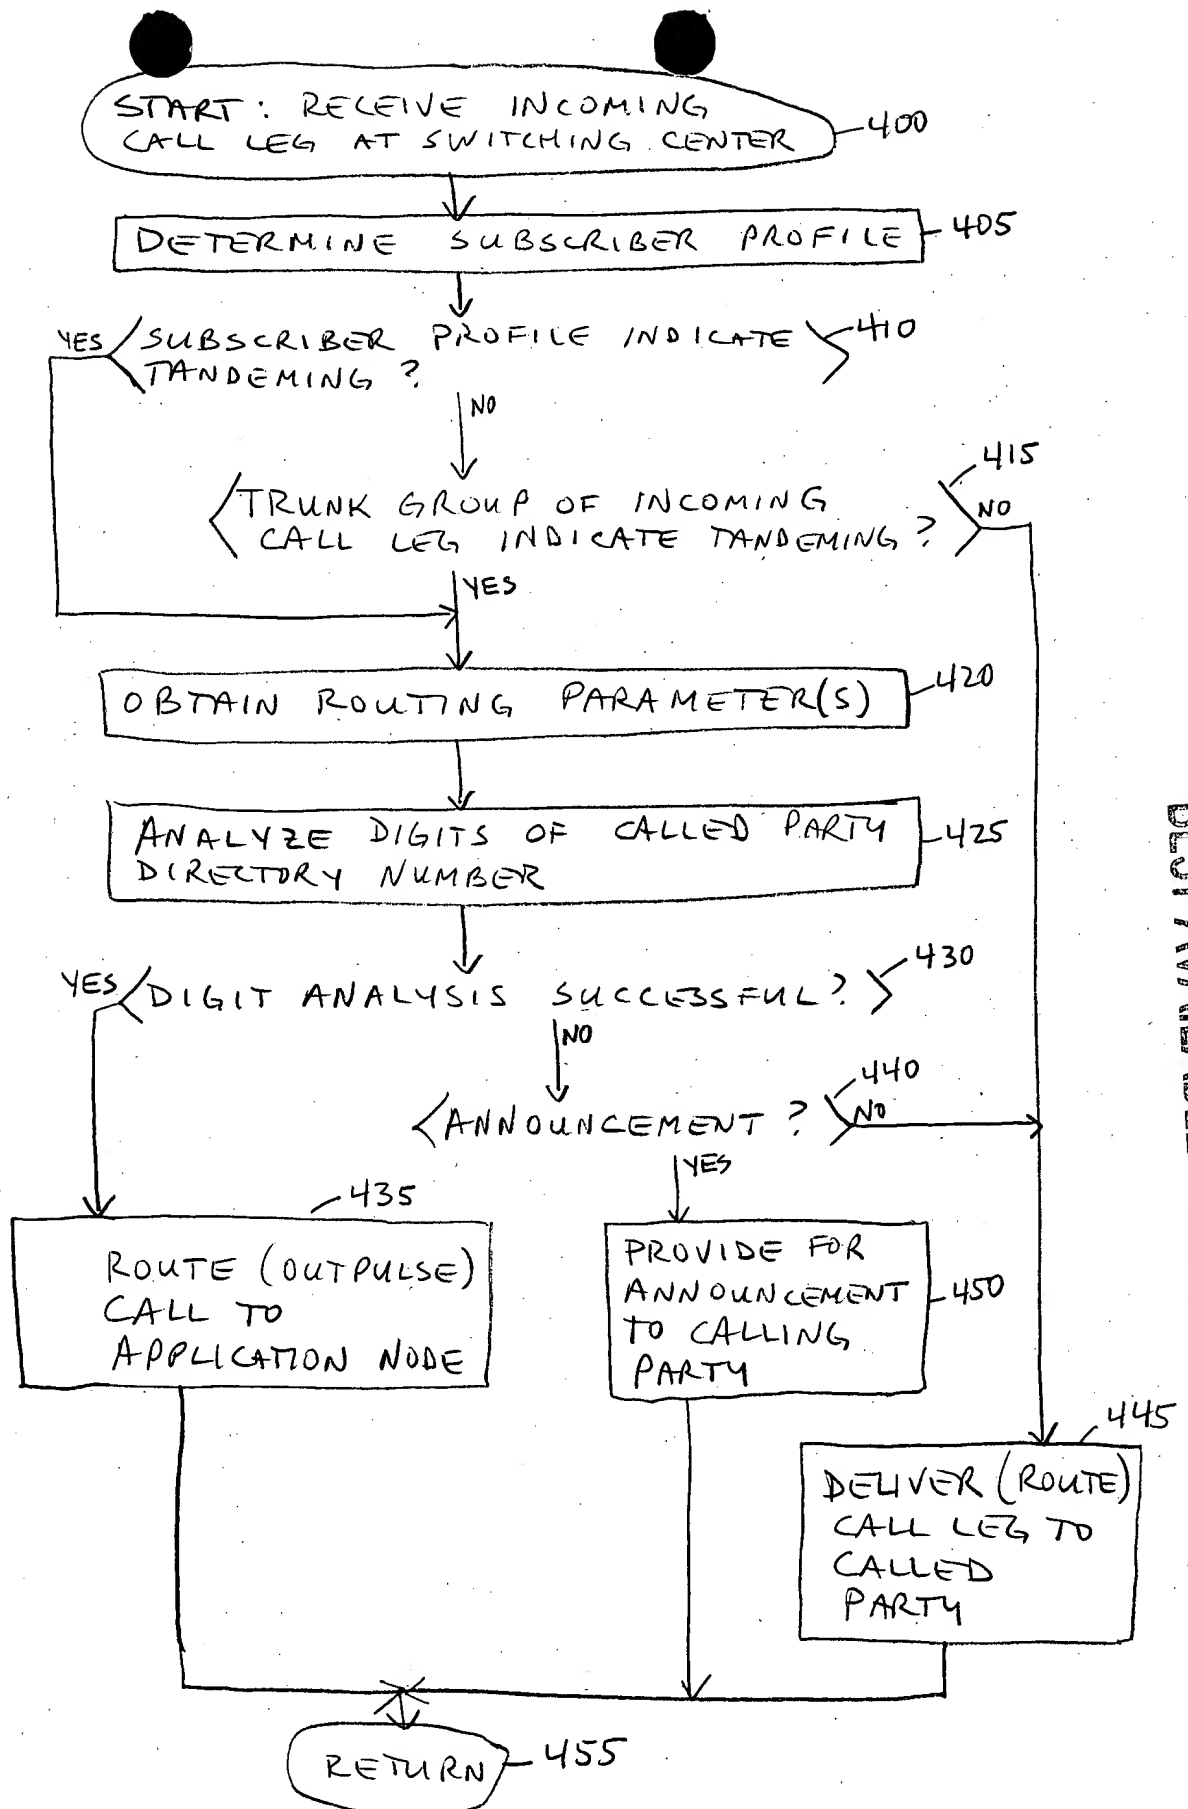 START: RECEIVE INCOMING
CALL LEG AT SWITCHING CENTER
400
DETERMINE SUBSCRIBER PROFILE
405
YES
SUBSCRIBER PROFILE INDICATE
TANDEMING ?
410
NO
415
TRUNK GROUP OF INCOMING
CALL LEG INDICATE TANDEMING ?
NO
YES
OBTAIN ROUTING PARAMETER(S)
420
ANALYZE DIGITS OF CALLED PARTY
DIRECTORY NUMBER
425
YES
DIGIT ANALYSIS SUCCESSFUL?
430
NO
440
ANNOUNCEMENT ?
NO
YES
435
ROUTE (OUTPULSE)
CALL TO
APPLICATION NODE
PROVIDE FOR
ANNOUNCEMENT
TO CALLING
PARTY
450
445
DELIVER (ROUTE)
CALL LEG TO
CALLED
PARTY
RETURN
455